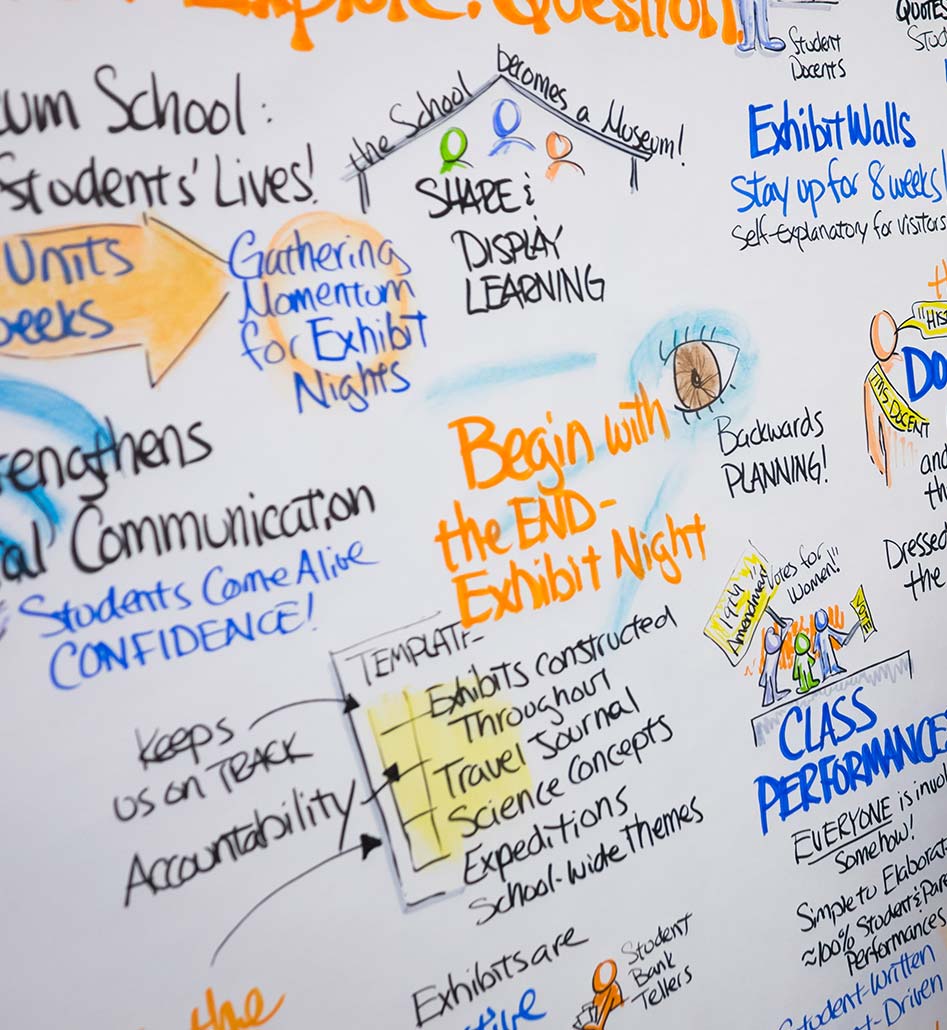 Explore. Question.
um School:
Students' Lives!
Units
eeks
Gathering
Momentum
for Exhibit
Nights
the School becomes a Museum!
SHAPE &
DISPLAY
LEARNING
Student
Docents
QUOTES
Stud
Exhibit Walls
Stay up for 8 weeks!
Self-Explanatory for visitors
"HIS
THIS DOCENT
DO
and
th
Dressed
the
rengthens
al Communication
Students Come Alive
CONFIDENCE!
Begin with
the END-
Exhibit Night
Backwards
PLANNING!
TEMPLATE
Exhibits constructed
Throughout
Travel Journal
Science Concepts
Expeditions
School-wide Themes
Keeps
us on TRACK
Accountability
Amendment
Votes for
Women!!
VOTE
CLASS
PERFORMANCE
EVERYONE is invol
Somehow!
Simple to Elaborat
≈100% Student & Pare
Performances
Student-Written
t-Driven
Exhibits are
tive
Student
Bank
Tellers
the